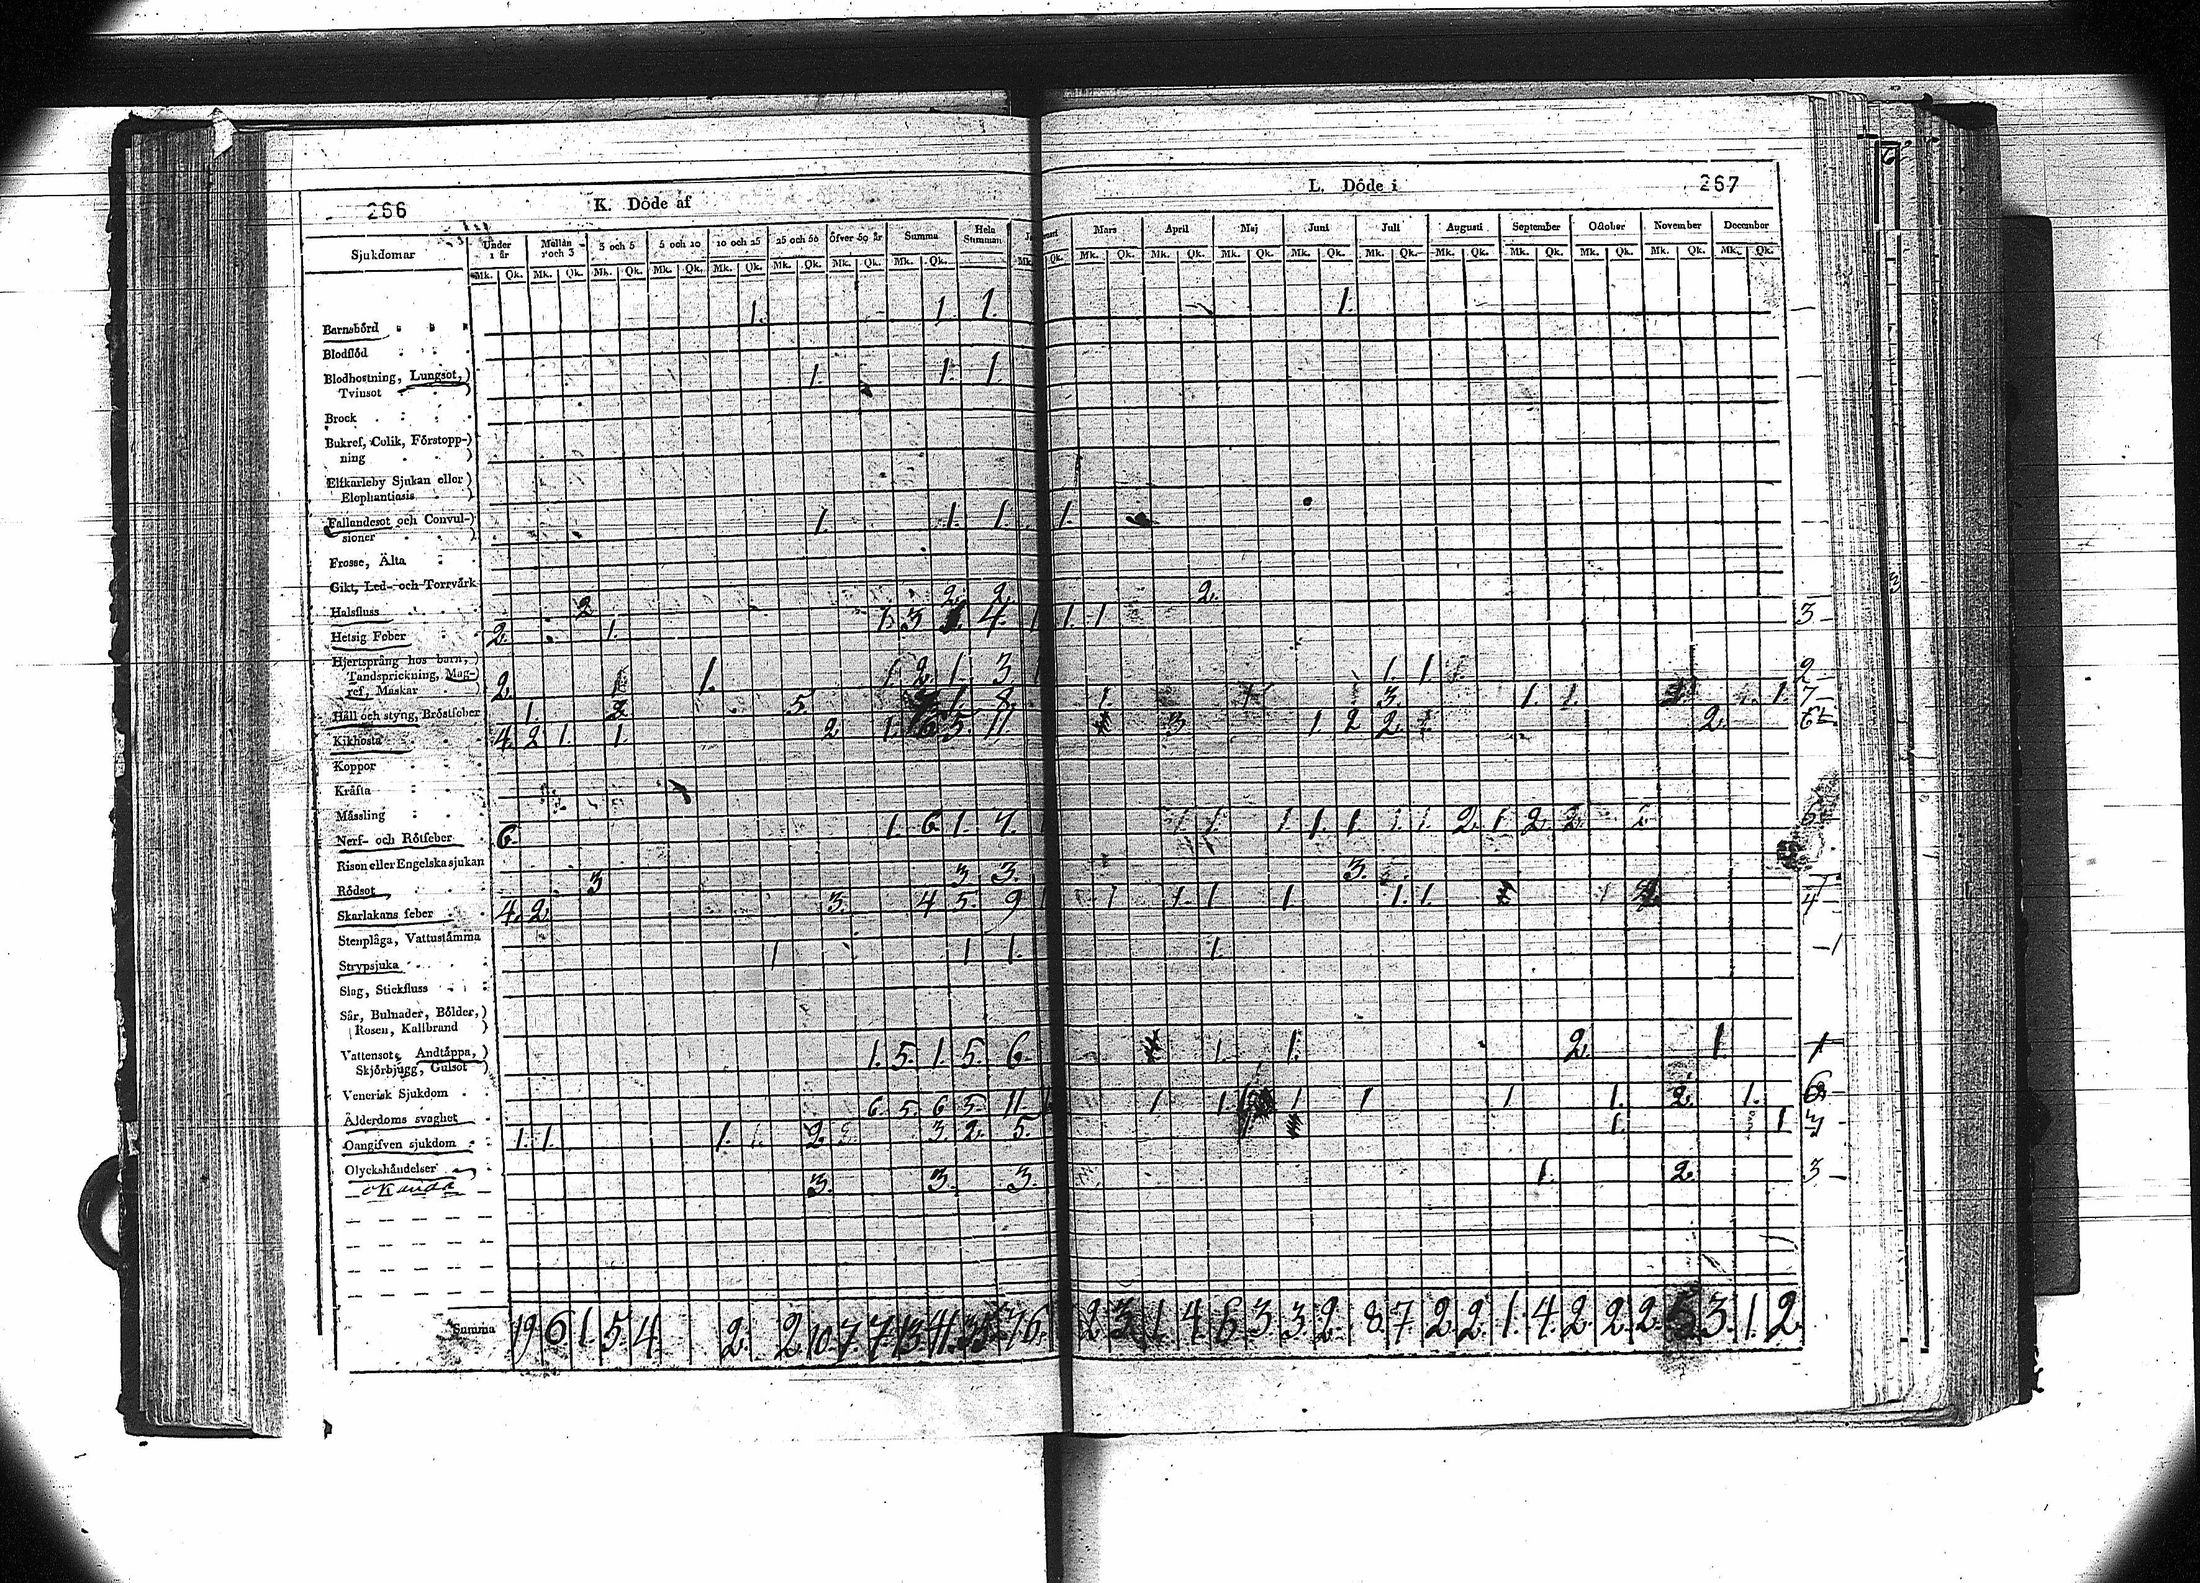 266
K. Döde af
L. Döde i
267
Sjukdomar
Under 1 år
Mellan 1 och 3
3 och 5
5 och 10
10 och 25
25 och 50
Öfver 50 år
Summa
Hela Summan
Mars
April
Maj
Juni
Juli
Augusti
September
October
November
December
Mk. Qk. Mk. Qk. Mk. Qk. Mk. Qk. Mk. Qk. Mk. Qk. Mk. Qk. Mk. Qk.
Mk. Qk. Mk. Qk. Mk. Qk. Mk. Qk. Mk. Qk. Mk. Qk. Mk. Qk. Mk. Qk. Mk. Qk. Mk. Qk. Mk. Qk.
Barnsbörd 1. 1. 1. 1.
Blodflöd
Blodhostning, Lungsot, 1. 1. 1.
Tvinsot
Brock
Bukref, Colik, Förstopp-
ning
Elfkarleby Sjukan eller
Elephantiasis
Fallandesot och Convul- 1. 1. 1. 1.
sioner
Frosse, Älta
Gikt, Led- och Torrvärk
Halsfluss 2 2. 2. 2.
Hetsig Feber 2. 1. 3 4. 1. 1 3
Hjertsprång hos barn,
Tandsprickning, Mag-
ref, Maskar 2. 1. 1 2. 1. 3 1. 1. 2
Håll och styng, Bröstfeber 1. 5. 1. 8. 1. 3. 1. 1. 1. 7
Kikhosta 4. 2 1. 1. 2. 1. 5. 11. 3 1. 2 2. 2.
Koppor
Kräfta
Mässling
Nerf- och Rötfeber 6. 1. 6. 1. 7. 1 1. 1 1. 1. 1. 1. 2. 1. 2. 2.
Risen eller Engelska sjukan
Rödsot 3 3 3. 3.
Skarlakans feber 4. 2 3. 4 5. 9 1 1. 1 1. 1. 1. 4
Stenplåga, Vattustämma
Strypsjuka 1 1 1. 1. 1
Slag, Stickfluss
Sår, Bulnader, Bölder,
Rosen, Kallbrand
Vattensot, Andtäppa, 1. 5. 1. 5. 6. 1. 1. 2. 1 1
Skjörbjugg, Gulsot
Venerisk Sjukdom
Ålderdoms svaghet 6. 5. 6. 5. 11. 1 1. 1 1 1 1. 2. 1. 6
Oangifven sjukdom 1. 1. 1. 2. 3. 2. 5. 1. 1
Olyckshändelser
okända 3. 3. 3. 1. 2. 3
Summa 19 6 1. 5. 4. 2. 2. 10. 7. 7. 13. 41. 35. 76. 2 3. 1. 4. 6. 3 3. 2. 8. 7. 2. 2. 1. 4. 2. 2. 2. 5 3. 1. 2.